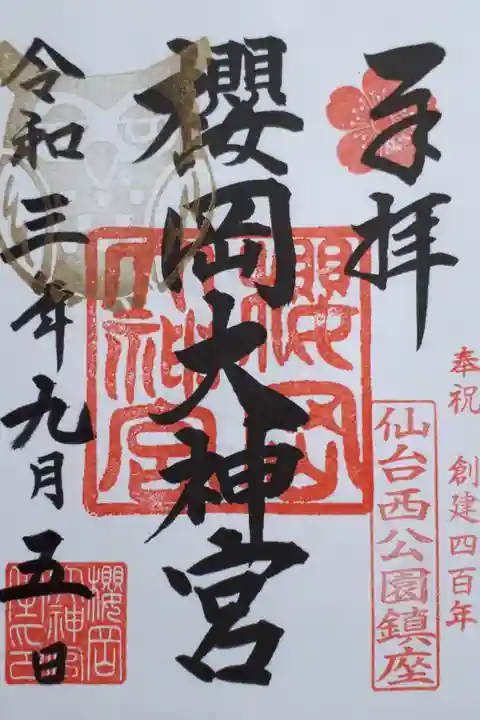 奉拝
奉祝 創建四百年
仙台西公園鎮座
櫻岡大神宮
櫻岡大神宮
令和三年九月五日